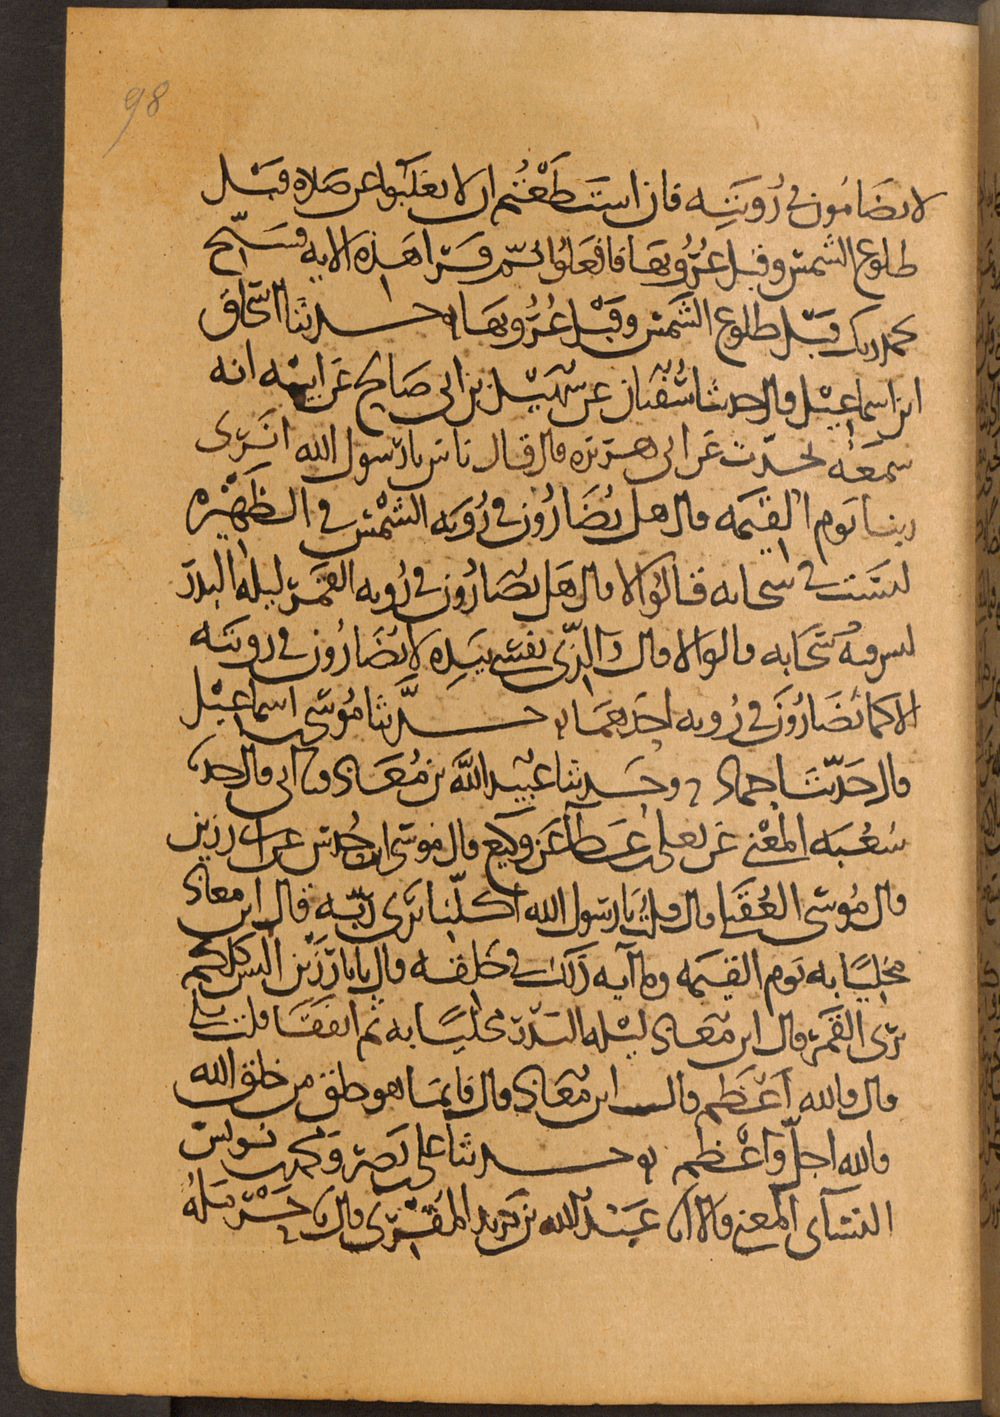 98
لا تضامون في رُويتِه فان استطعتُم ان لا تغلبُوا عن صَلاه قبْل
طلوع الشمس وقبل غرُوبها فافعَلوُا ثمّ قرا هذه الايه فسَبّح
بحمد ربك قبْل طلوع الشَّمْس وقَبْل غُرُوبها حدثنا اسحَاق
ابن اسماعيْل قال حدثنا سُفيَان عن سُهَيْل بن ابى صَالح عَن ابيْه انه
سمعَه يحدّث عَن ابى هرَيرَه قال قال ناس يا رَسول الله انَرى
ربنا يَوم القيمَه قال هل تُضَارُّون في رُويَه الشمْس في الظَهِيْره
ليسَت في سحابه قالوُا لا قال هَل تضَارُّون في رُويه القمَر ليله البدر
ليس فيهُ سَحَابه قالوا لا قال وَالذّى نفسى بيَدِه لا تُضَارُون في رويته
الا كما تُضَارُوَن في رُويه احدهمَا حدَّثنا مُوسَى اسماعيْل
قال حَدّثنَا حماد وحَدثنا عبَيْد اللَّه بن مُعَاذ ابى قال حدثنا
شُعْبَه المعْنى عَن يعلى عَطآ عَن وَكيع قال موسَى ابن حُدس عن ابى رزين
قال مُوسَى العُقَيلى قال قلتُ يَا رسَول الله أكلّنا يَرَى رَبّه قال ابن معاذ
مخلِيًا به يَوم القيمَه وما آيه ذَلك في خلقه قال يا با رَزين اليسَ كلكم
يَرى القمَر قال ابن مُعَاذ ليْله البَدْر مخلِيًا به ثم اتفقَا قلت بلى
قال فالله أعْظَم قالـ ابن مُعَاذ قال فانمَا هو خلق من خلق الله
فالله اجَلّ وَاعْظم حدثنا على نَصر وَمحمد يُونس
النسَآى المعنى قالا نا عَبْد الله بن يَزيد المُقْرى قال نا حَرْمَلهُ